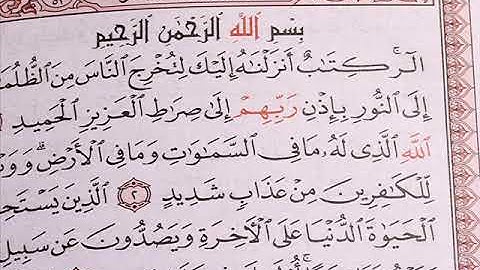 بِسْمِ اللَّهِ الرَّحْمَٰنِ الرَّحِيمِ
الٓر ۚ كِتَابٌ أَنزَلْنَاهُ إِلَيْكَ لِتُخْرِجَ النَّاسَ مِنَ الظُّلُمَا
إِلَى النُّورِ بِإِذْنِ رَبِّهِمْ إِلَىٰ صِرَاطِ الْعَزِيزِ الْحَمِيدِ
اللَّهِ الَّذِي لَهُ مَا فِي السَّمَاوَاتِ وَمَا فِي الْأَرْضِ ۗ وَوَ
لِّلْكَافِرِينَ مِنْ عَذَابٍ شَدِيدٍ ٢ الَّذِينَ يَسْتَحِ
الْحَيَاةَ الدُّنْيَا عَلَى الْآخِرَةِ وَيَصُدُّونَ عَن سَبِيلِ